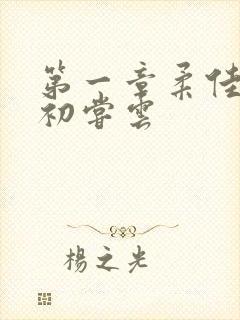 第一章柔佳
初嘗雲
楊之光